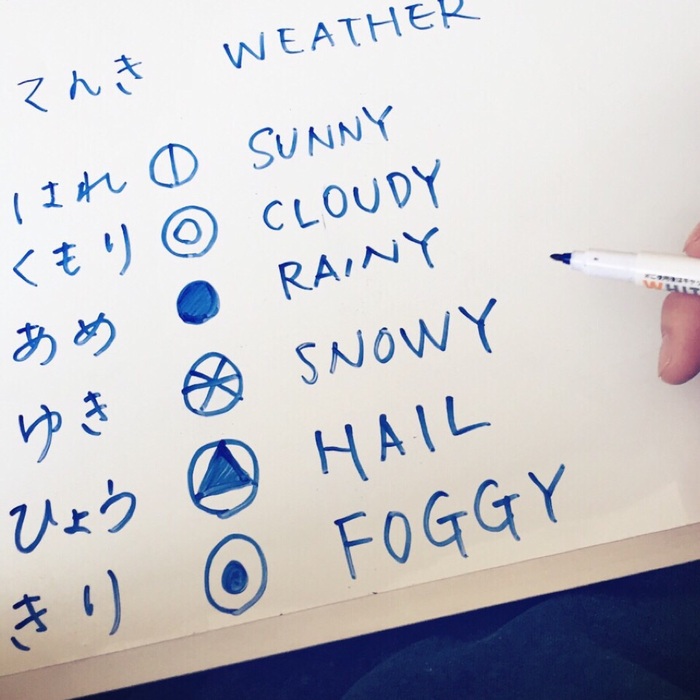 てんき WEATHER
はれ SUNNY
くもり CLOUDY
あめ RAINY
ゆき SNOWY
ひょう HAIL
きり FOGGY
WHIT